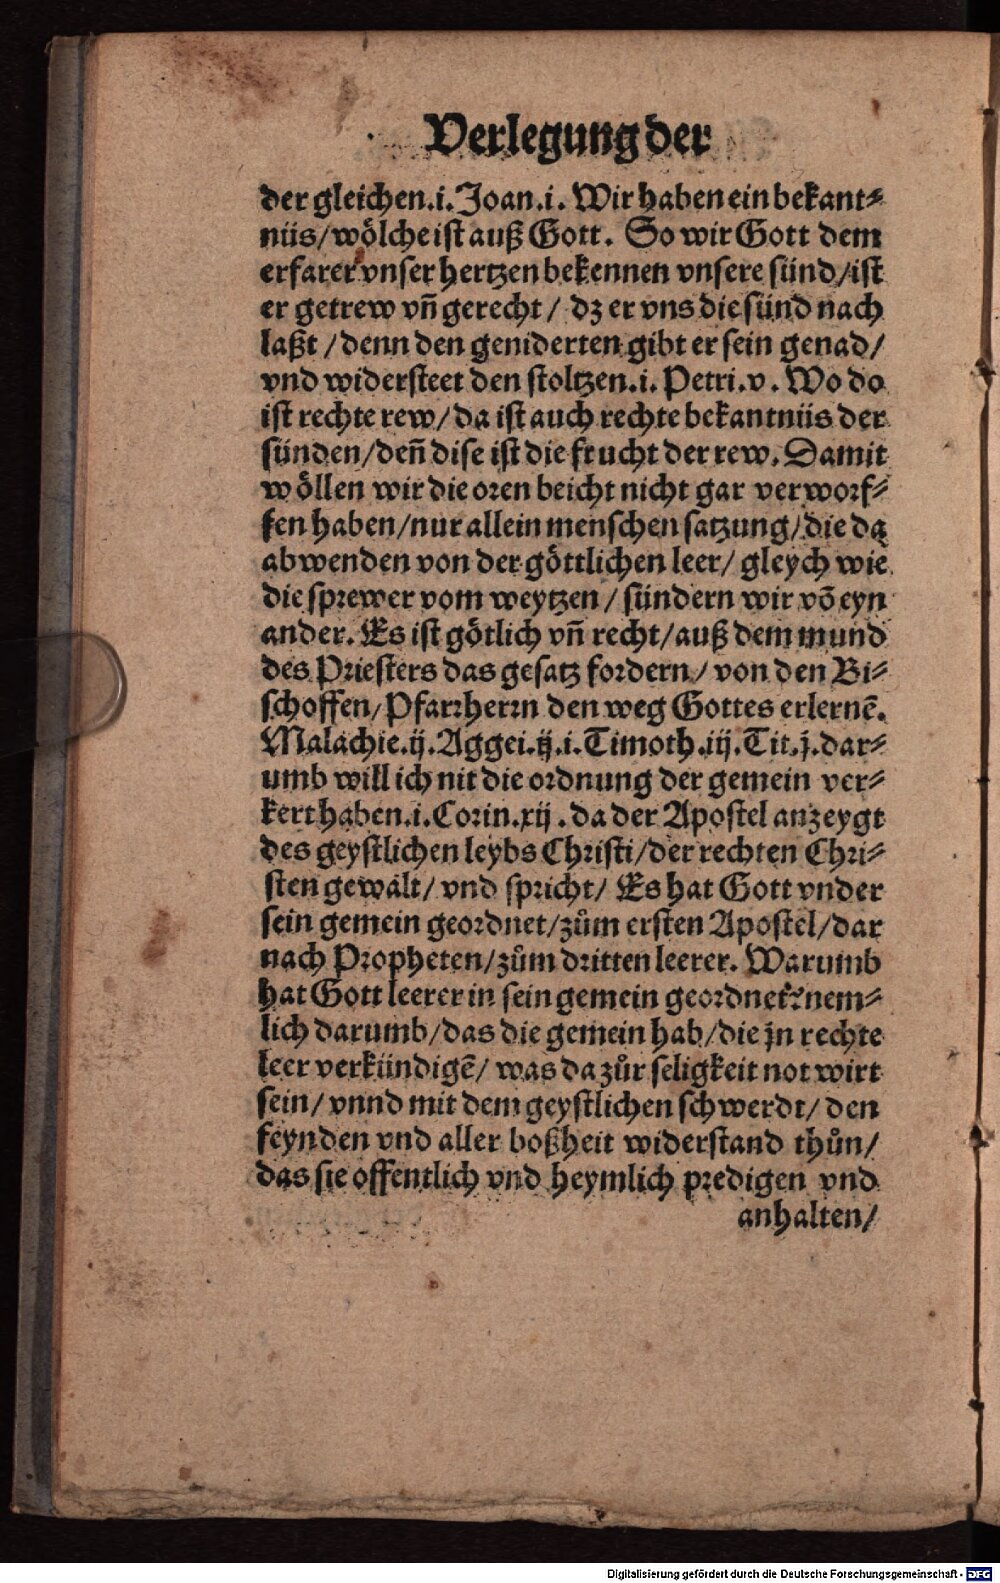 Verlegung der
der gleichen.i.Joan.i. Wir haben ein bekant⸗
nüs/wölche ist auß Gott. So wir Gott dem
erfarer vnser hertzen bekennen vnsere sünd/ist
er getrew vn̄ gerecht / dz er vns die sünd nach
laßt /denn den geniderten gibt er sein genad/
vnd widersteet den stoltzen.i. Petri.v. Wo do
ist rechte rew/da ist auch rechte bekantnüs der
sünden/den̄ dise ist die frucht der rew. Damit
wöllen wir die oren beicht nicht gar verworf⸗
fen haben/nur allein menschen satzung/die da
abwenden von der göttlichen leer/ gleych wie
die sprewer vom weytzen / sündern wir vō eyn
ander. Es ist götlich vn̄ recht/auß dem mund
des Priesters das gesatz fordern/ von den Bi⸗
schoffen/Pfarrherrn den weg Gottes erlernē.
Malachie.ij.Aggei.ij.i.Timoth.iij.Tit.j.dar⸗
umb will ich nit die ordnung der gemein ver⸗
kert haben.i.Corin.xij.da der Apostel anzeygt
des geystlichen leybs Christi/der rechten Chri⸗
sten gewalt/ vnd spricht/ Es hat Gott vnder
sein gemein geordnet/zům ersten Apostel/dar
nach Propheten/zům dritten leerer. Warumb
hat Gott leerer in sein gemein geordnet?nem⸗
lich darumb/das die gemein hab/die jn rechte
leer verkündigē/ was da zůr seligkeit not wirt
sein/ vnnd mit dem geystlichen schwerdt/ den
feynden vnd aller boßheit widerstand thůn/
das sie offentlich vnd heymlich predigen vnd
anhalten/
Digitalisierung gefördert durch die Deutsche Forschungsgemeinschaft - DFG